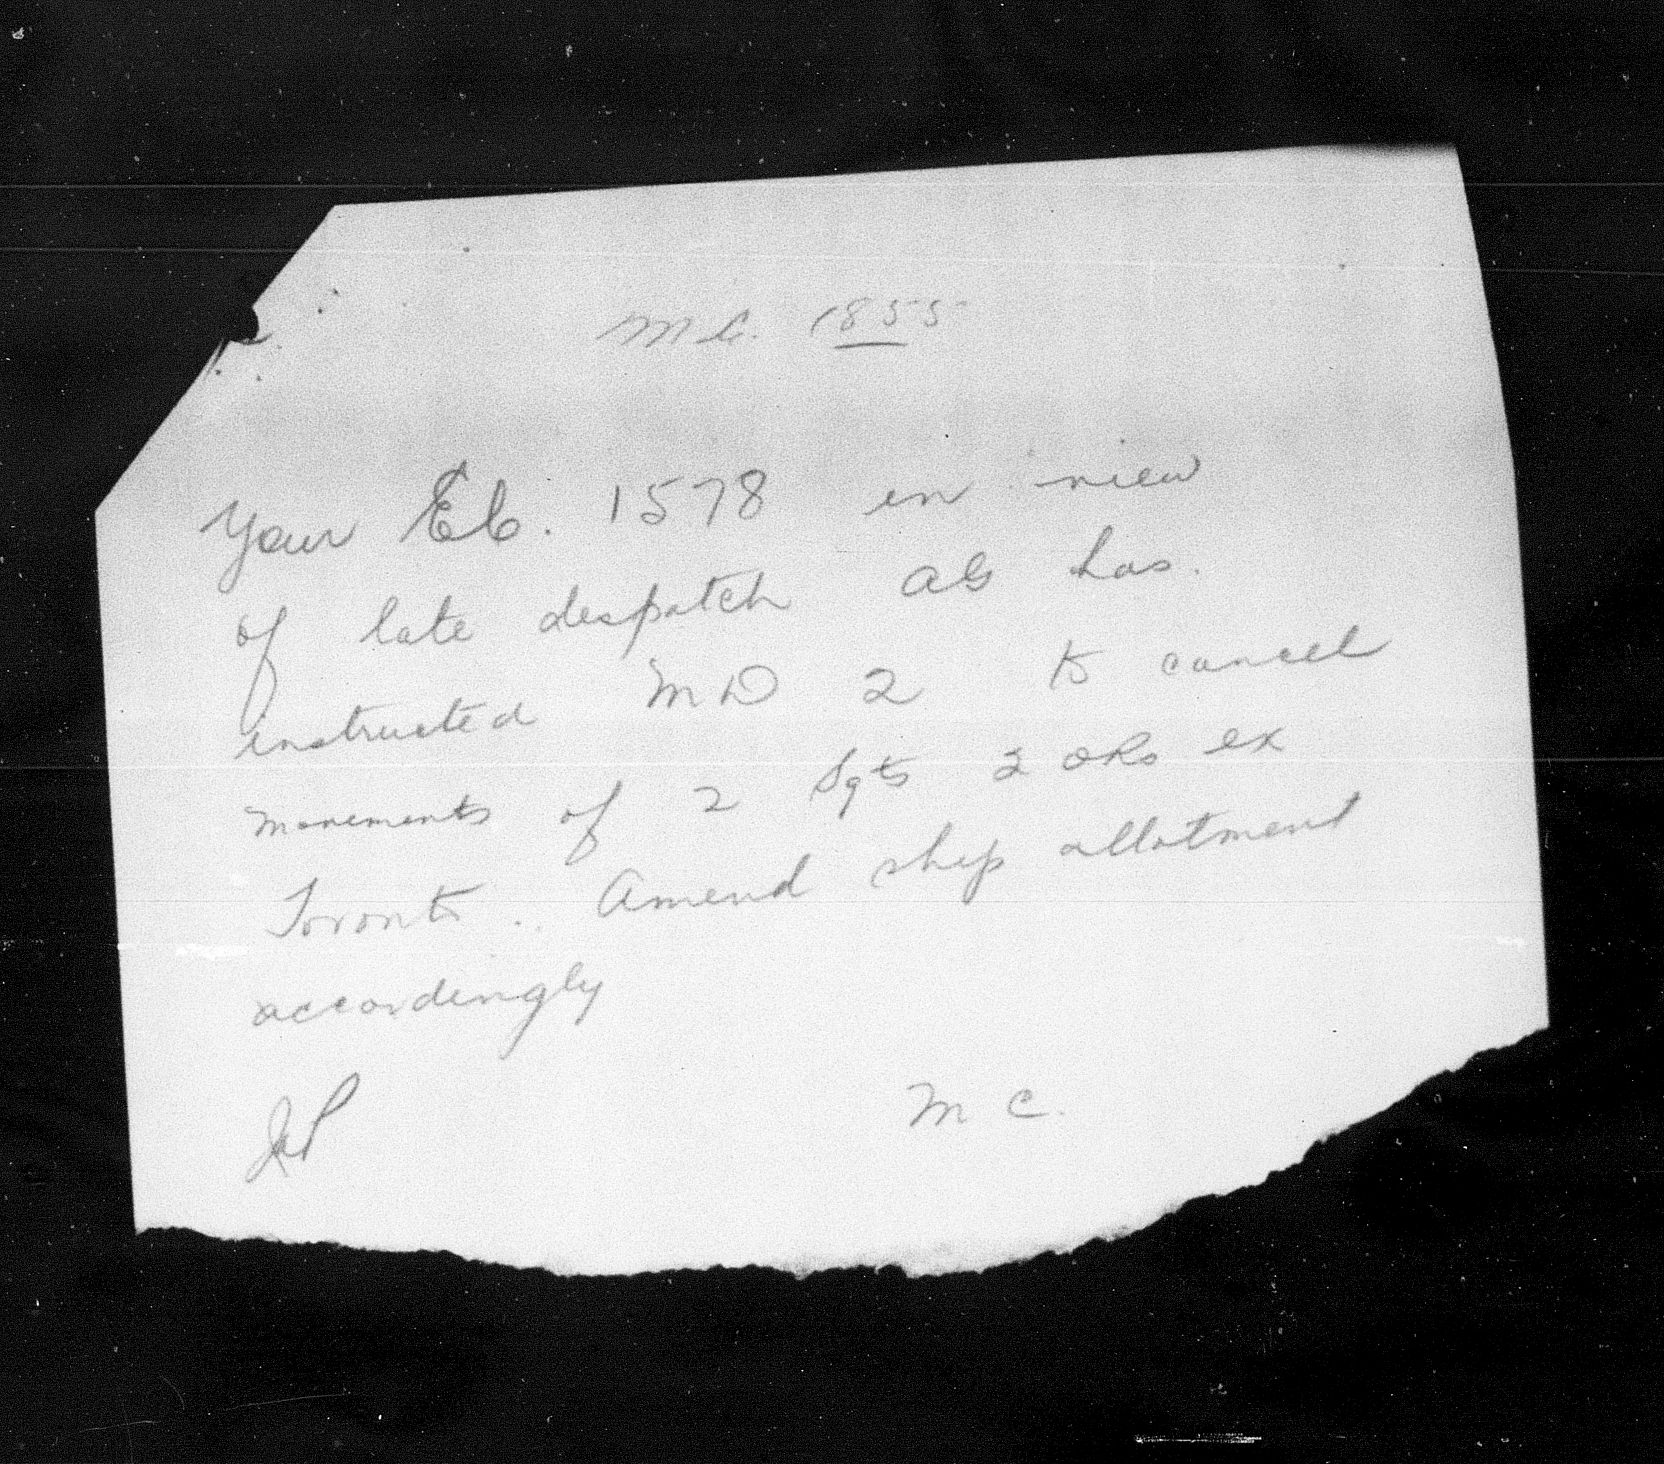 M.C. 1855
Your EC. 1578 in view
of late despatch AG has.
instructed MD 2 to cancel
movements of 2 Sgts 2 ORs ex
Toronto. Amend ship allotment
accordingly
M C.